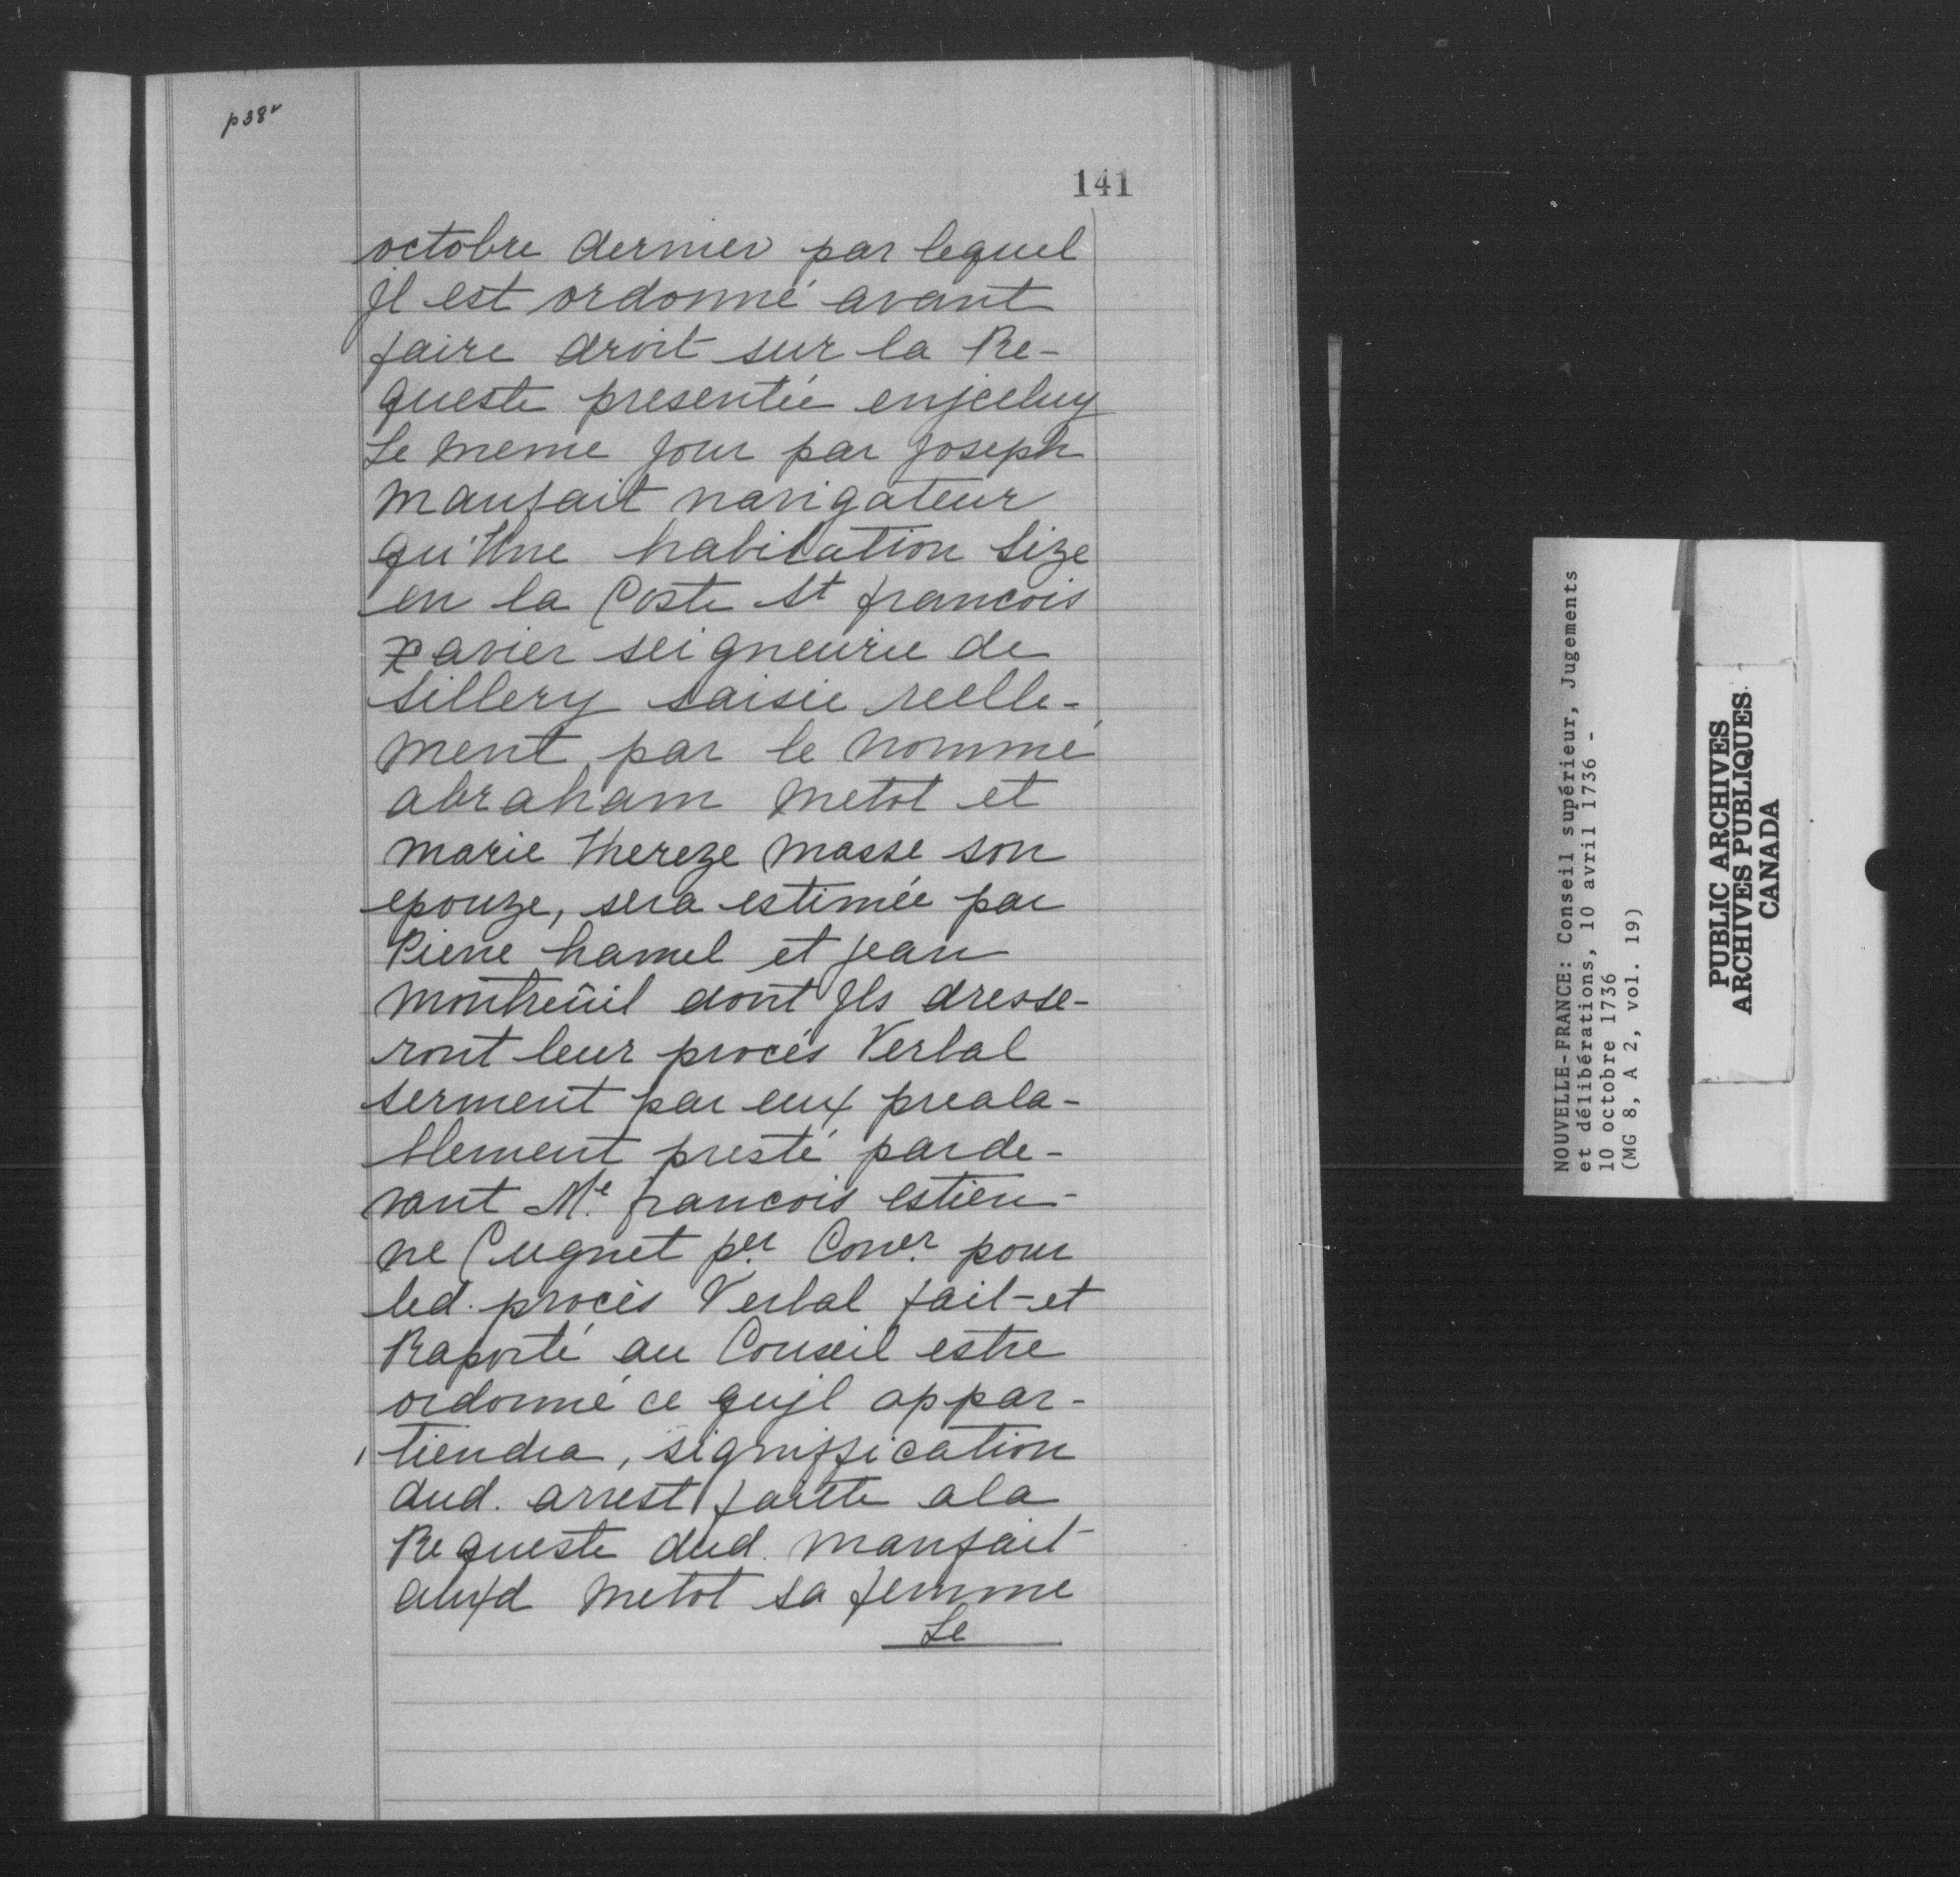 p38v
141
octobre dernier par lequel
jl est ordonné avant
faire droit sur la Re-
queste presentée enjceluy
Le meme jour par joseph
maufait navigateur
qu'Une habitation size
en la Coste St francois
xavier seigneurie de
sillery saisie reelle-
ment par le nommé
abraham metot et
marie thereze masse son
epouze, sera estimée par
Pierre hamel et jean
montreüil dont jls dresse-
ront leur procés Verbal
serment par eux preala-
blement presté parde-
vant Me. francois estien-
ne Cugnet per. Coner. pour
led. procès Verbal fait et
Raporté au Conseil estre
ordonné ce qujl appar-
tiendra, signiffication
dud. arrest faitte ala
Requeste dud. maufait
auxd metot sa femme
Le
NOUVELLE-FRANCE: Conseil supérieur, Jugements
et délibérations, 10 avril 1736 -
10 octobre 1736
(MG 8, A 2, vol. 19)
PUBLIC ARCHIVES
ARCHIVES PUBLIQUES
CANADA